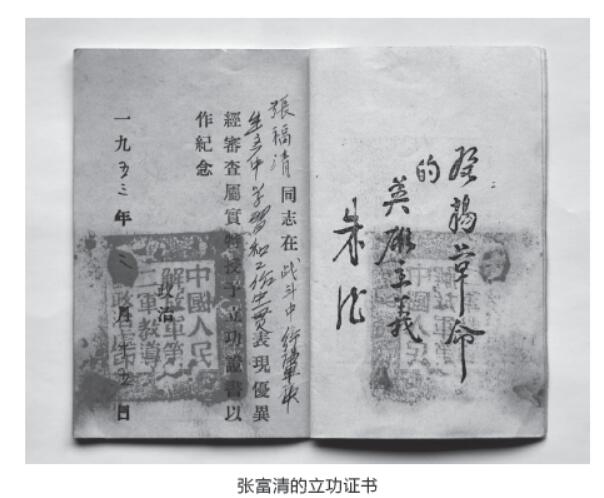 發揚革命
的
英雄主義
朱德
張福清同志在战斗中
生产中学習和工作中一贯表現優異
經審查屬實特授予立功證書以
作紀念
一九五三年 月 五日
中國人民
解放軍第
二軍教導
政治
张富清的立功证书